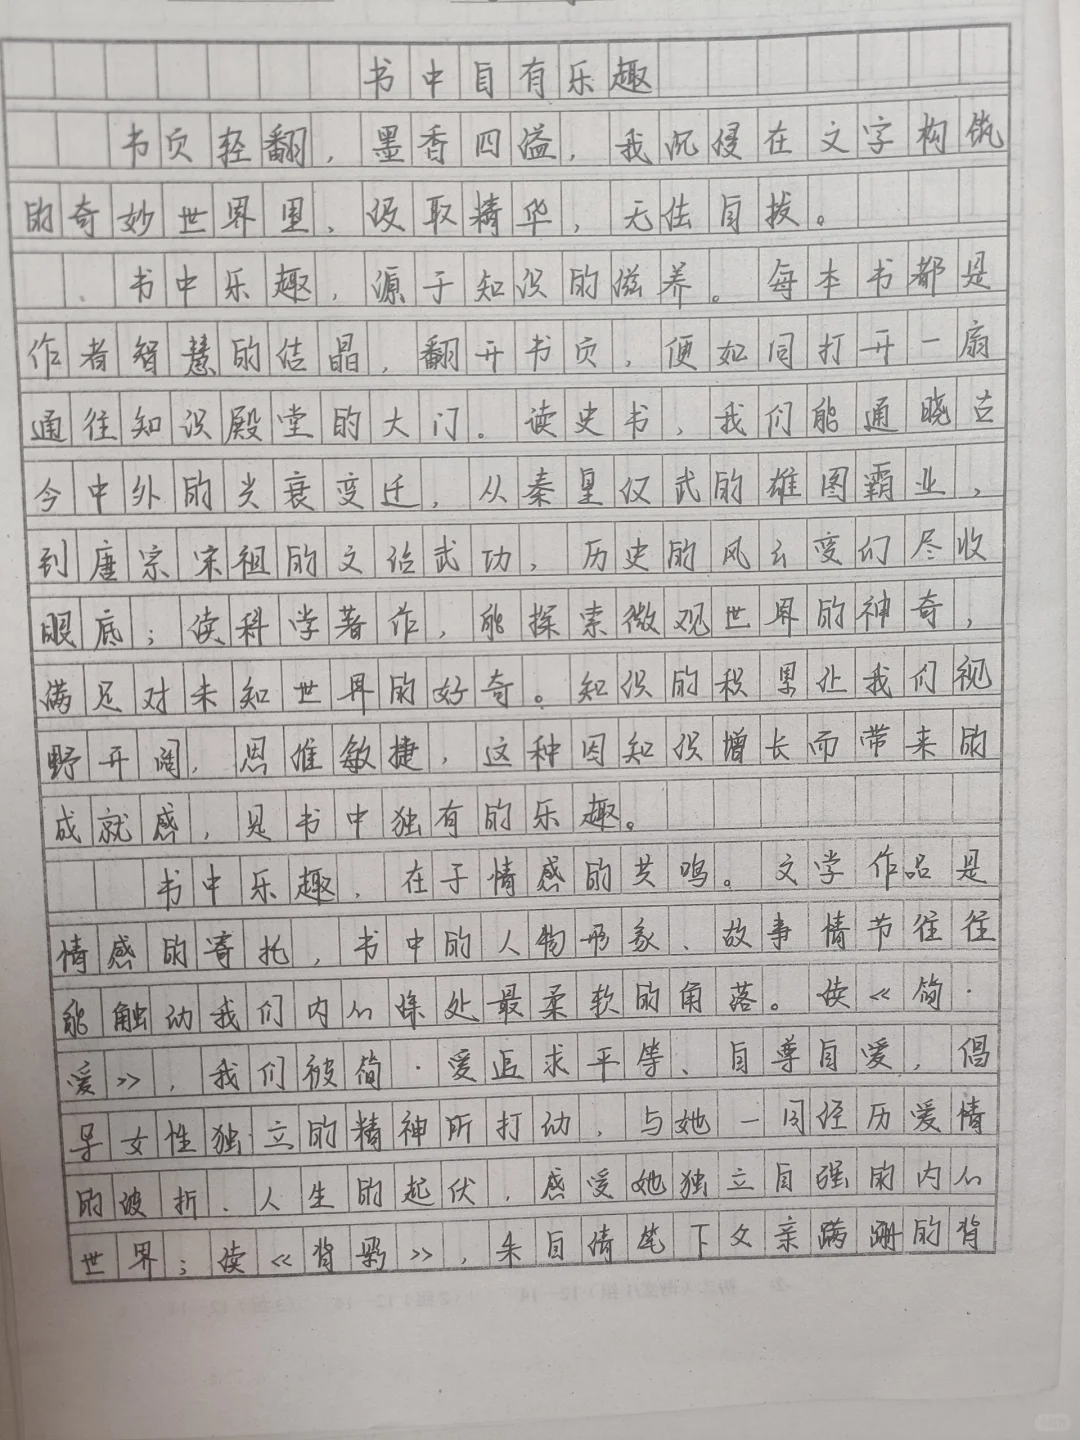 书中自有乐趣
书页轻翻，墨香四溢，我沉浸在文字构筑
的奇妙世界里，汲取精华，无法自拔。
书中乐趣，源于知识的滋养。每本书都是
作者智慧的结晶，翻开书页，便如同打开一扇
通往知识殿堂的大门。读史书，我们能通晓古
今中外的兴衰变迁，从秦皇汉武的雄图霸业，
到唐宗宋祖的文治武功，历史的风云变幻尽收
眼底；读科学著作，能探索微观世界的神奇，
满足对未知世界的好奇。知识的积累让我们视
野开阔，思维敏捷，这种因知识增长而带来的
成就感，是书中独有的乐趣。
书中乐趣，在于情感的共鸣。文学作品是
情感的寄托，书中的人物形象、故事情节往往
能触动我们内心深处最柔软的角落。读《简·
爱》，我们被简·爱追求平等、自尊自爱，倡
导女性独立的精神所打动，与她一同经历爱情
的波折、人生的起伏，感受她独立自强的内心
世界；读《背影》，朱自清笔下父亲蹒跚的背